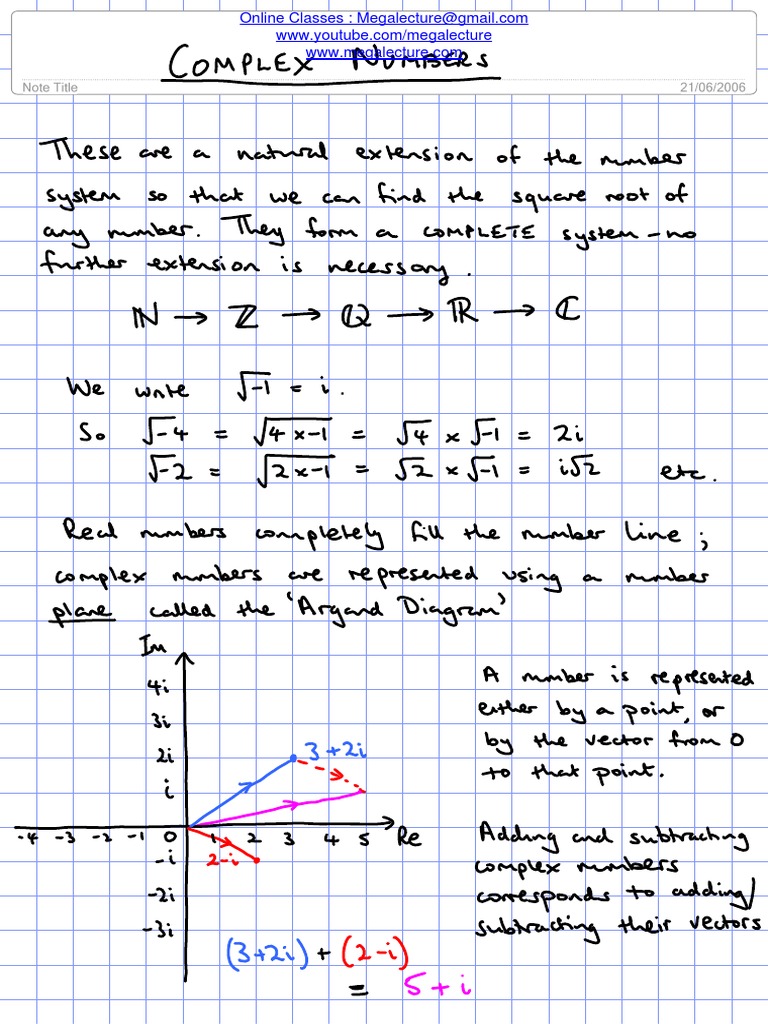 Online Classes : Megalecture@gmail.com
www.youtube.com/megalecture
www.megalecture.com
COMPLEX NUMBERS
Note Title
21/06/2006
These are a natural extension of the number
system so that we can find the square root of
any number. They form a COMPLETE system – no
further extension is necessary.
ℕ → ℤ → ℚ → ℝ → ℂ
We write √-1 = i.
So √-4 = √4×-1 = √4 × √-1 = 2i
√-2 = √2×-1 = √2 × √-1 = i√2 etc.
Real numbers completely fill the number line;
complex numbers are represented using a number
plane called the 'Argand Diagram'
Im
4i
3i
2i
i
3+2i
-4 -3 -2 -1 0 1 2 3 4 5 Re
-i
2-i
-2i
-3i
A number is represented
either by a point, or
by the vector from 0
to that point.
Adding and subtracting
complex numbers
corresponds to adding/
subtracting their vectors
(3+2i) + (2-i)
= 5 + i